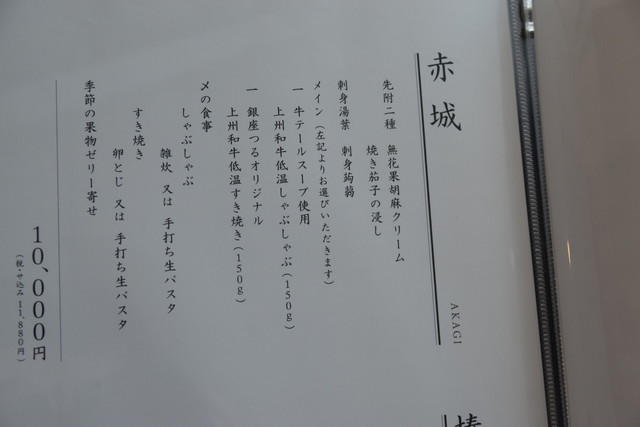 赤城
AKAGI
先附二種　無花果胡麻クリーム
焼き茄子の浸し
刺身湯葉　刺身蒟蒻
メイン（左記よりお選びいただきます）
一　牛テールスープ使用
上州和牛低温しゃぶしゃぶ（150g）
一　銀座つるオリジナル
上州和牛低温すき焼き（150g）
〆の食事
しゃぶしゃぶ
雑炊　又は　手打ち生パスタ
すき焼き
卵とじ　又は　手打ち生パスタ
季節の果物ゼリー寄せ
10,000円
（税・サ込み 11,880円）
椿